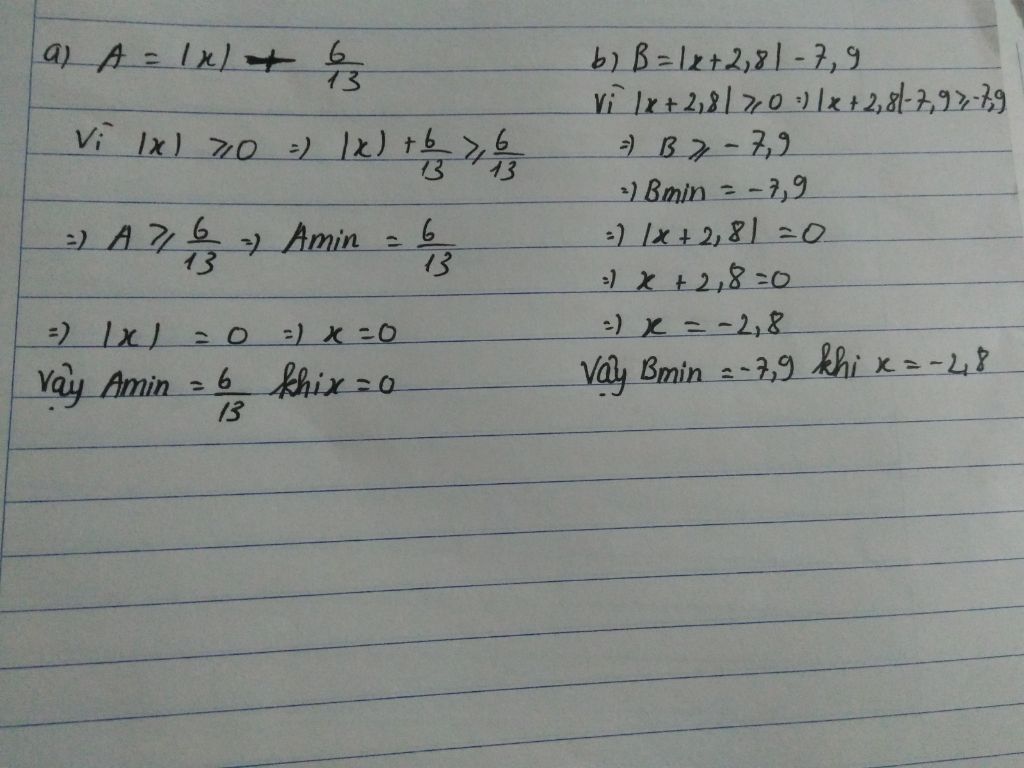 a) A = |x| + 6/13
Vì |x| ⩾ 0 => |x| + 6/13 ⩾ 6/13
=> A ⩾ 6/13 => Amin = 6/13
=> |x| = 0 => x = 0
Vậy Amin = 6/13 khi x = 0
b) B = |x + 2,8| - 7,9
Vì |x + 2,8| ⩾ 0 => |x + 2,8| - 7,9 ⩾ -7,9
=> B ⩾ - 7,9
=> Bmin = - 7,9
=> |x + 2,8| = 0
=> x + 2,8 = 0
=> x = -2,8
Vậy Bmin = -7,9 khi x = -2,8